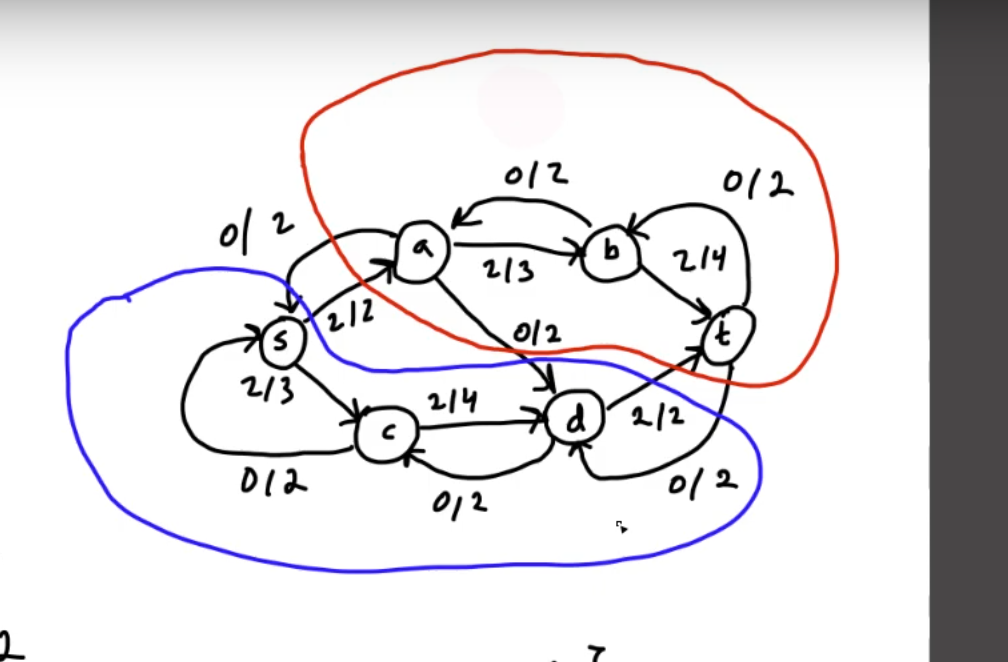 0/2
0/2
0/2
a
b
2/3
2/4
2/2
0/2
t
s
2/3
2/4
c
d
2/2
0/2
0/2
0/2
2